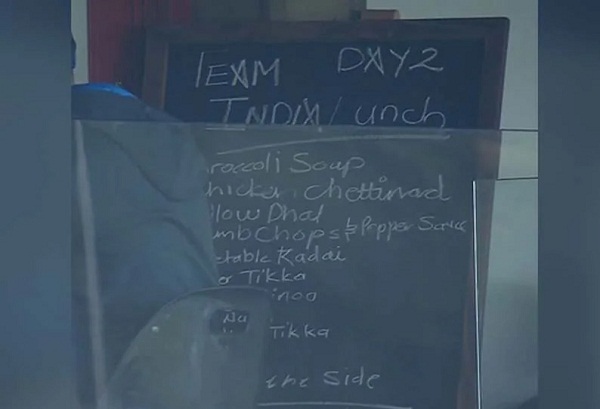 TEAM DAY2
INDIA Lunch
roccoli Soup
hicken Chettinad
llow Dhal
mb Chops & Pepper Sauce
etable Kadai
Tikka
Tikka
the Side